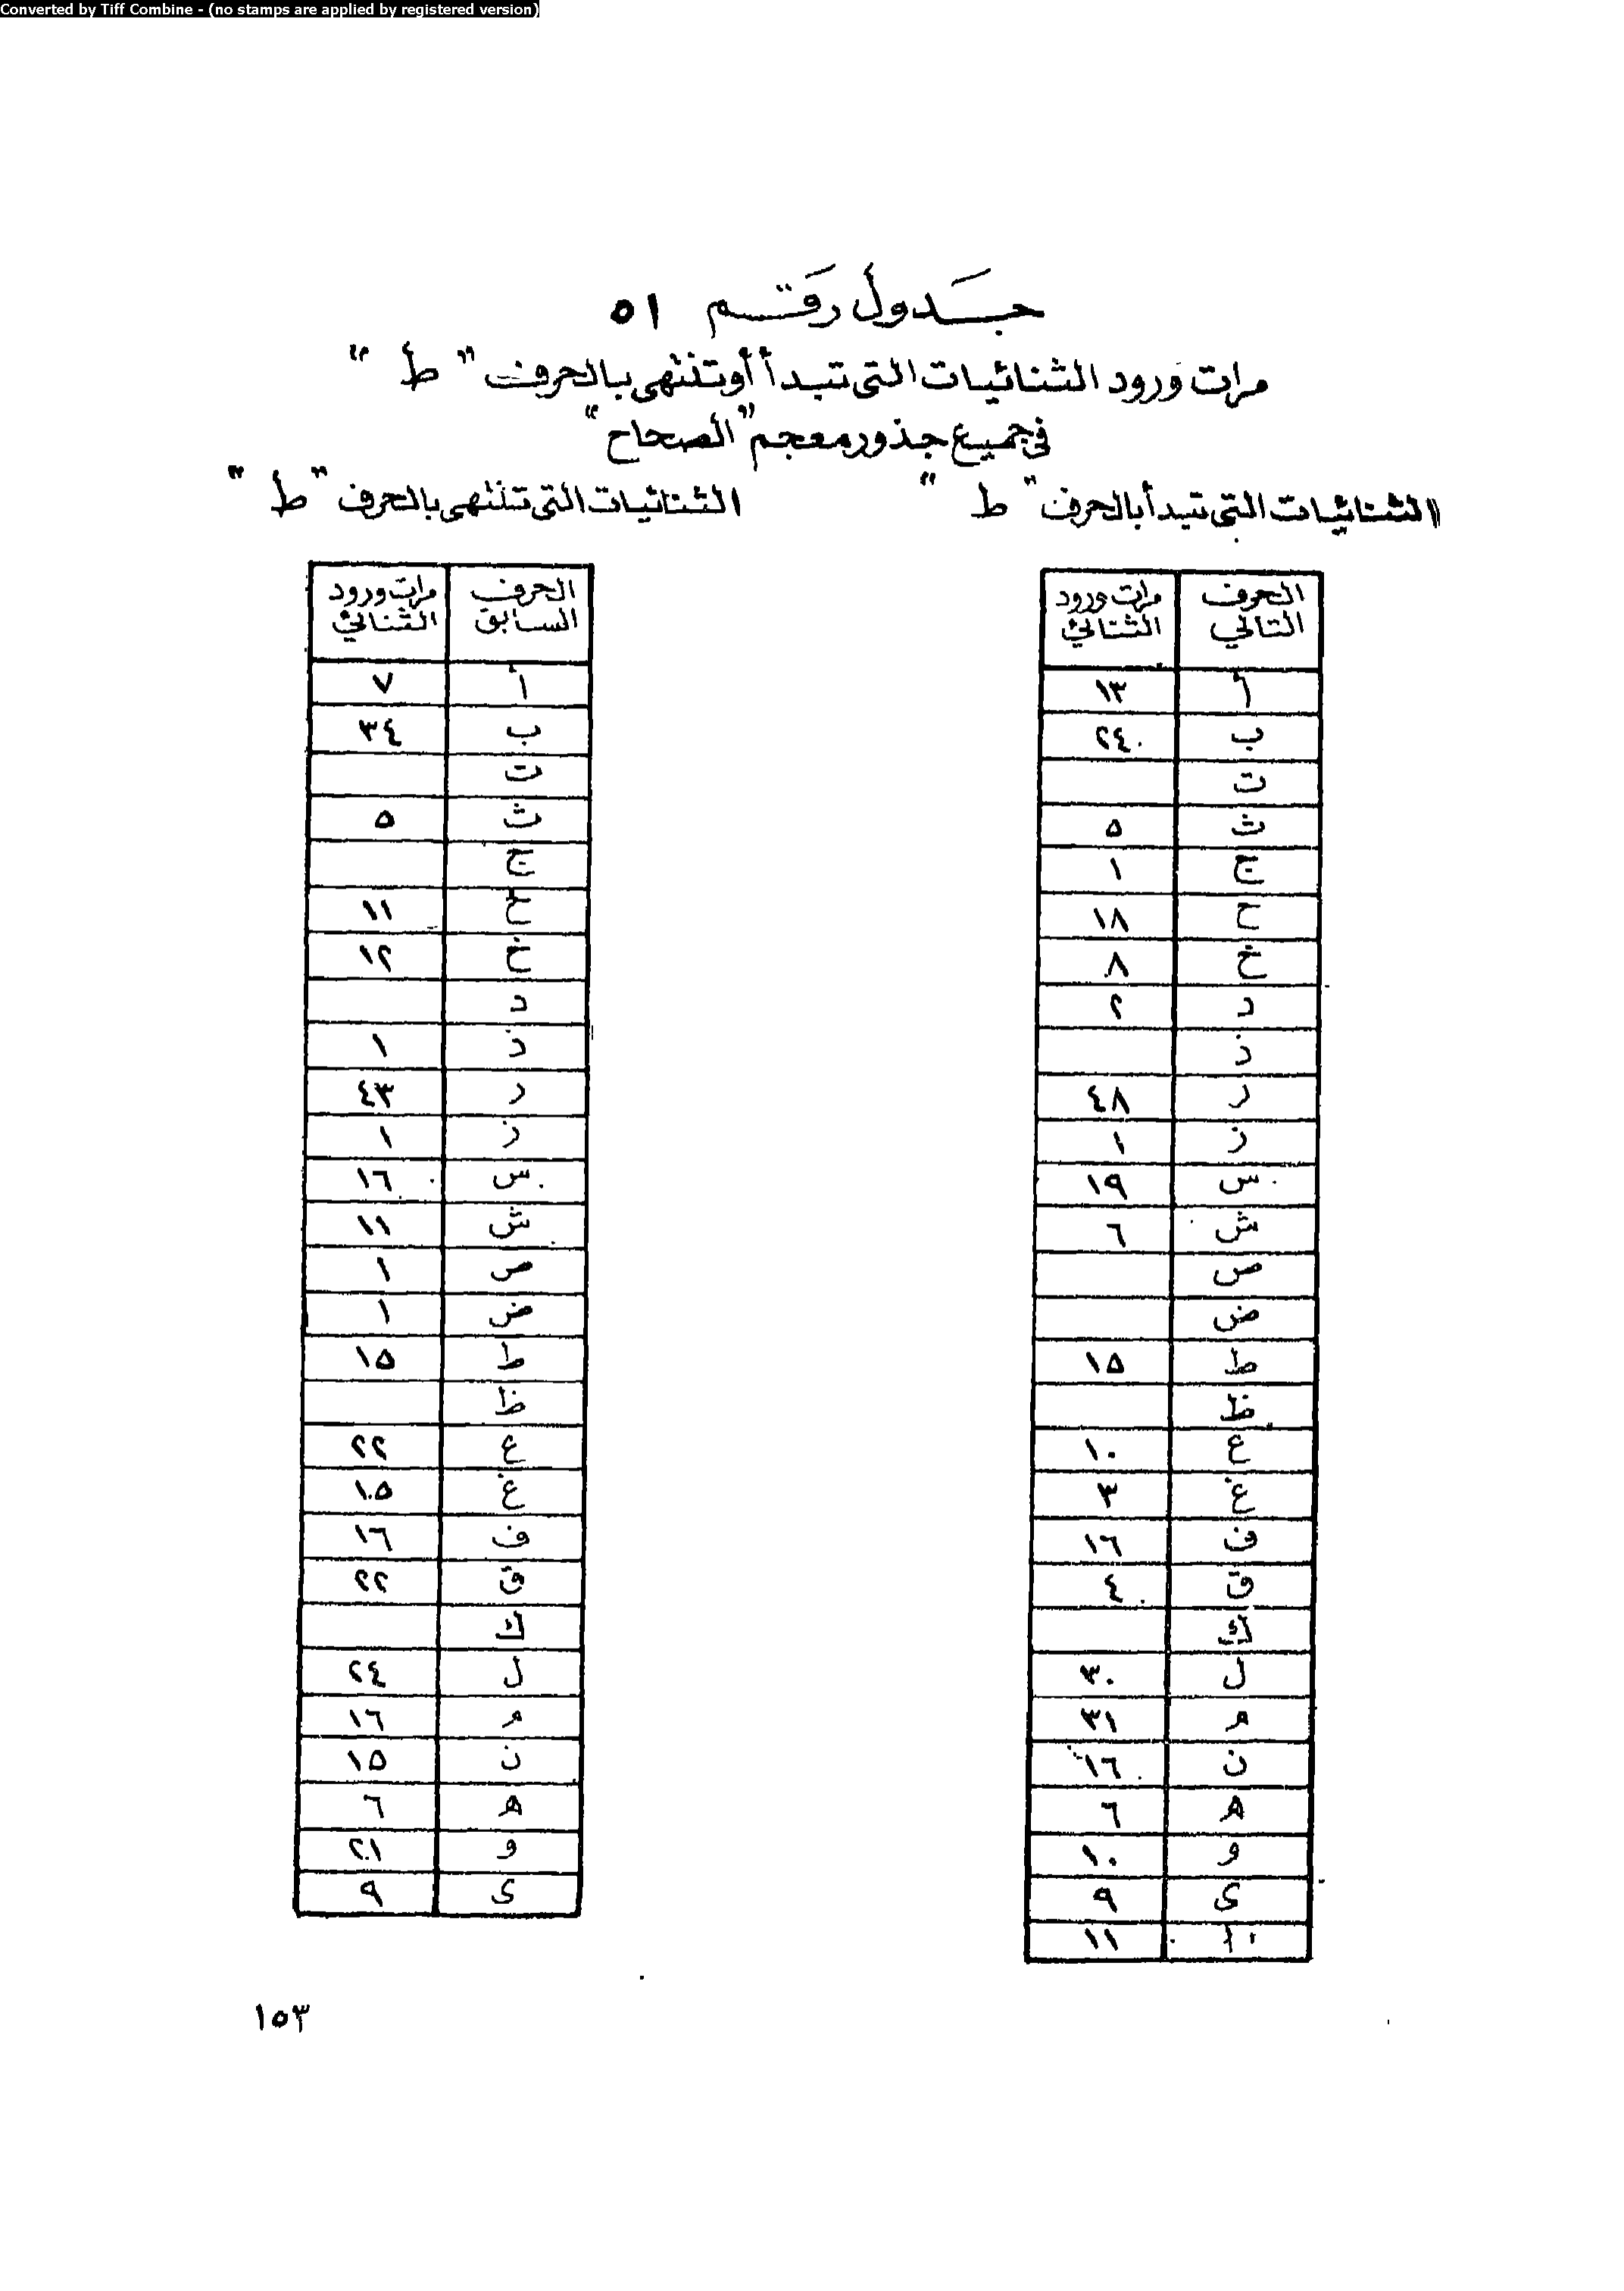 Converted by Tiff Combine - (no stamps are applied by registered version)
جَدول رقَم ٥١
مرات ورود الثنائيات التى تبدأ أو تنتهى بالحرف "ط"
فى جميع جذور معجم "الصحاح"
الثنائيات التى تبدأ بالحرف "ط"
الحرف التالي | مرات ورود الثنائي
أ | ١٣
ب | ٢٤
ت |
ث | ٥
ج | ١
ح | ١٨
خ | ٨
د | ٢
ذ |
ر | ٤٨
ز | ١
س | ١٩
ش | ٦
ص |
ض |
ط | ١٥
ظ |
ع | ١٠
غ | ٣
ف | ١٦
ق | ٤
ك |
ل | ٣٠
م | ٣١
ن | ١٦
ه | ٦
و | ١٠
ى | ٩
ا | ١١
الثنائيات التى تنتهى بالحرف "ط"
الحرف السابق | مرات ورود الثنائي
أ | ٧
ب | ٣٤
ت |
ث | ٥
ج |
ح | ١١
خ | ١٢
د |
ذ | ١
ر | ٤٣
ز | ١
س | ١٦
ش | ١١
ص | ١
ض | ١
ط | ١٥
ظ |
ع | ٢٢
غ | ١٥
ف | ١٦
ق | ٢٢
ك |
ل | ٢٤
م | ١٦
ن | ١٥
ه | ٦
و | ٢١
ى | ٩
١٥٣